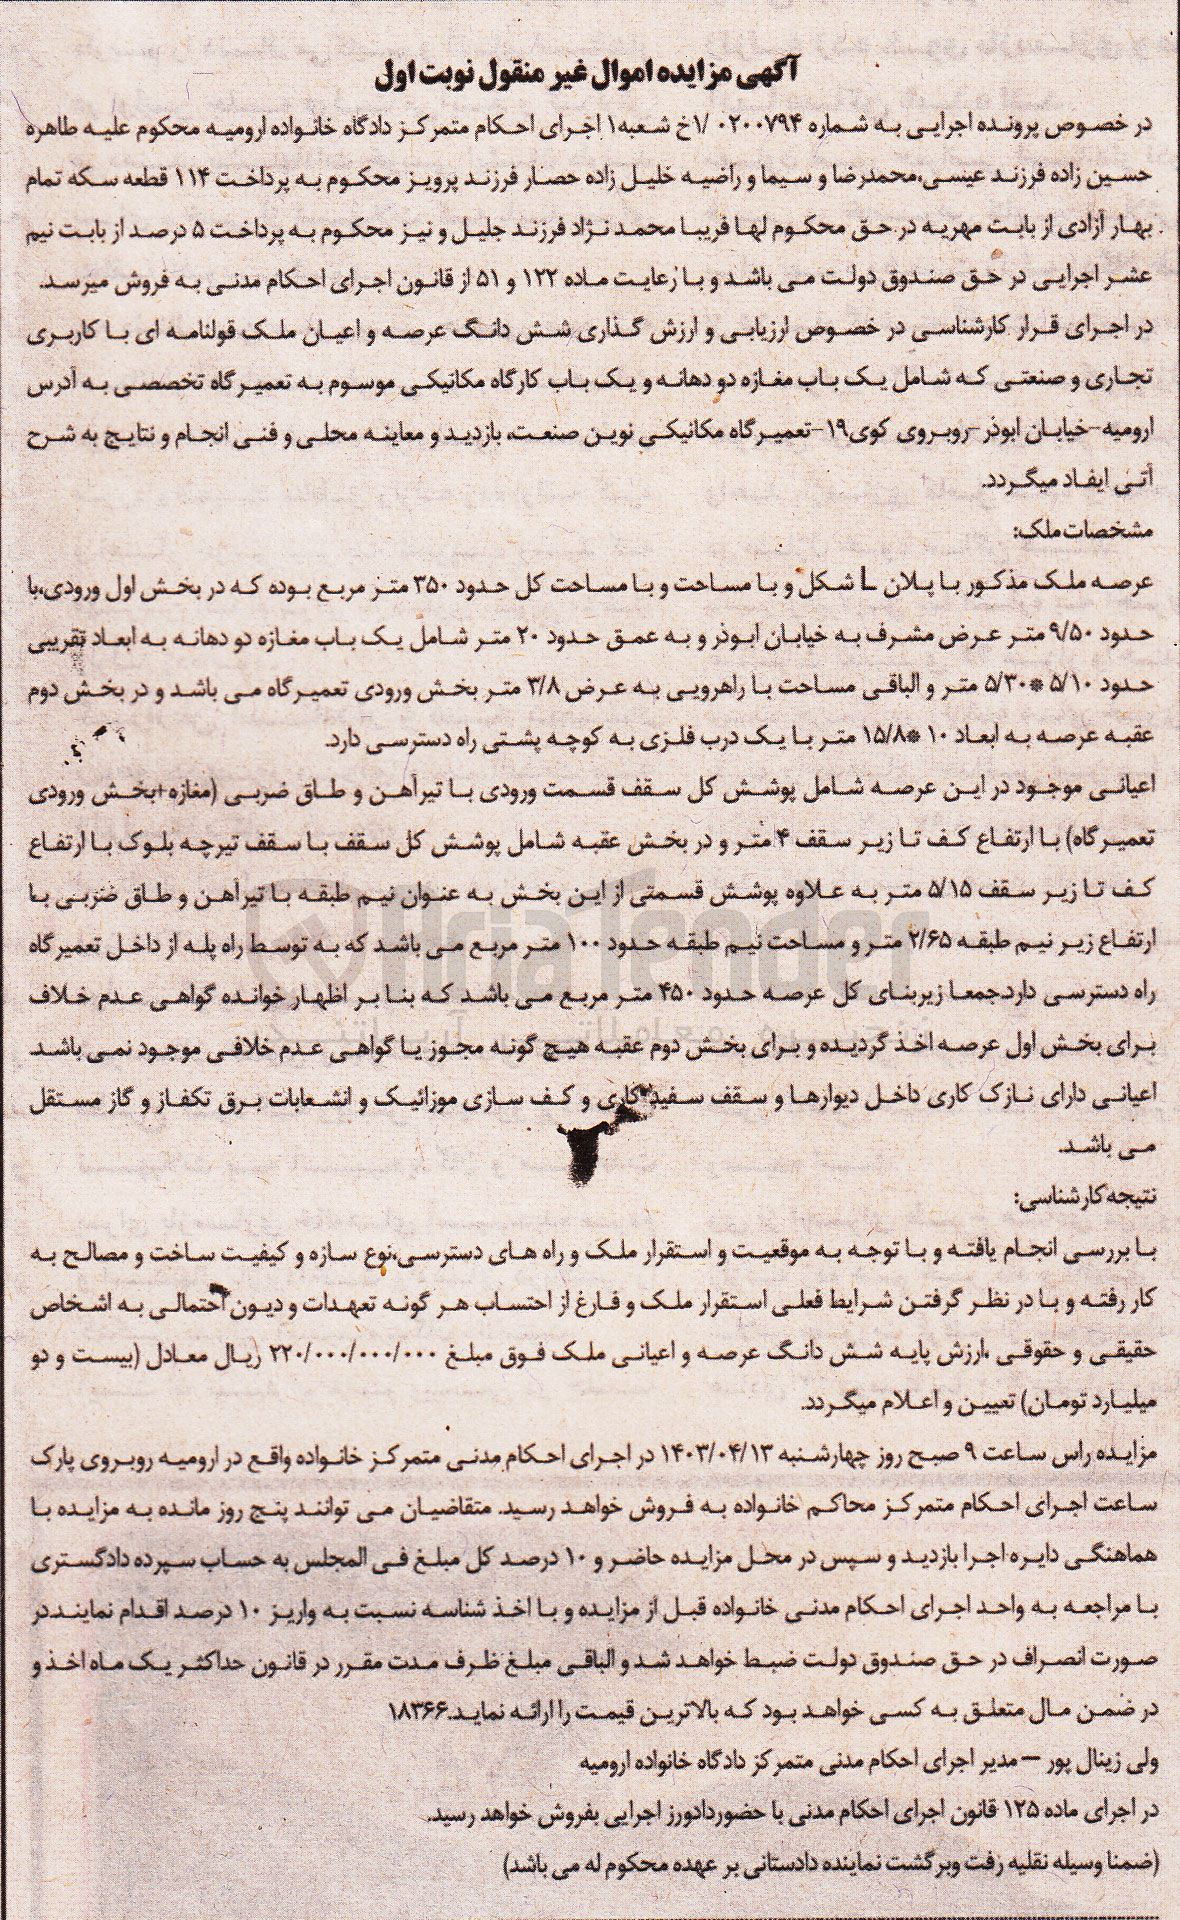 آگهی مزایده اموال غیر منقول نوبت اول
در خصوص پرونده اجرایی به شماره ۰۲۰۰۷۹۴ /۱خ شعبه۱ اجرای احکام متمرکز دادگاه خانواده ارومیه محکوم علیه طاهره
حسین زاده فرزند عیسی،محمدرضا و سیما و راضیه خلیل زاده حصار فرزند پرویز محکوم به پرداخت ۱۱۴ قطعه سکه تمام
بهار آزادی از بابت مهریه در حق محکوم لها فریبا محمد نژاد فرزند جلیل و نیز محکوم به پرداخت ۵ درصد از بابت نیم
عشر اجرایی در حق صندوق دولت می باشد و با رعایت ماده ۱۲۲ و ۵۱ از قانون اجرای احکام مدنی به فروش میرسد.
در اجرای قرار کارشناسی در خصوص ارزیابی و ارزش گذاری شش دانگ عرصه و اعیان ملک قولنامه ای با کاربری
تجاری و صنعتی که شامل یک باب مغازه دو دهانه و یک باب کارگاه مکانیکی موسوم به تعمیرگاه تخصصی به آدرس
ارومیه-خیابان ابوذر-روبروی کوی۱۹-تعمیرگاه مکانیکی نوین صنعت، بازدید و معاینه محلی و فنی انجام و نتایج به شرح
آتی ایفاد میگردد.
مشخصات ملک:
عرصه ملک مذکور با پلان L شکل و با مساحت و با مساحت کل حدود ۳۵۰ متر مربع بوده که در بخش اول ورودی،با
حدود ۹/۵۰ متر عرض مشرف به خیابان ابوذر و به عمق حدود ۲۰ متر شامل یک باب مغازه دو دهانه به ابعاد تقریبی
حدود ۵/۱۰ *۵/۳۰ متر و الباقی مساحت با راهرویی به عرض ۳/۸ متر بخش ورودی تعمیرگاه می باشد و در بخش دوم
عقبه عرصه به ابعاد ۱۰ *۱۵/۸ متر با یک درب فلزی به کوچه پشتی راه دسترسی دارد.
اعیانی موجود در این عرصه شامل پوشش کل سقف قسمت ورودی با تیرآهن و طاق ضربی (مغازه+بخش ورودی
تعمیرگاه) با ارتفاع کف تا زیر سقف ۴ متر و در بخش عقبه شامل پوشش کل سقف با سقف تیرچه بلوک با ارتفاع
کف تا زیر سقف ۵/۱۵ متر به علاوه پوشش قسمتی از این بخش به عنوان نیم طبقه با تیرآهن و طاق ضربی با
ارتفاع زیر نیم طبقه ۲/۶۵ متر و مساحت نیم طبقه حدود ۱۰۰ متر مربع می باشد که به توسط راه پله از داخل تعمیرگاه
راه دسترسی دارد.جمعا زیربنای کل عرصه حدود ۴۵۰ متر مربع می باشد که بنا بر اظهار خوانده گواهی عدم خلاف
برای بخش اول عرصه اخذ گردیده و برای بخش دوم عقبه هیچ گونه مجوز یا گواهی عدم خلافی موجود نمی باشد
اعیانی دارای نازک کاری داخل دیوارها و سقف سفید کاری و کف سازی موزائیک و انشعابات برق تکفاز و گاز مستقل
می باشد.
نتیجه کارشناسی:
با بررسی انجام یافته و با توجه به موقعیت و استقرار ملک و راه های دسترسی،نوع سازه و کیفیت ساخت و مصالح به
کار رفته و با در نظر گرفتن شرایط فعلی استقرار ملک و فارغ از احتساب هر گونه تعهدات و دیون احتمالی به اشخاص
حقیقی و حقوقی ،ارزش پایه شش دانگ عرصه و اعیانی ملک فوق مبلغ ۲۲۰/۰۰۰/۰۰۰/۰۰۰ ریال معادل (بیست و دو
میلیارد تومان) تعیین و اعلام میگردد.
مزایده راس ساعت ۹ صبح روز چهارشنبه ۱۴۰۳/۰۴/۱۳ در اجرای احکام مدنی متمرکز خانواده واقع در ارومیه روبروی پارک
ساعت اجرای احکام متمرکز محاکم خانواده به فروش خواهد رسید. متقاضیان می توانند پنج روز مانده به مزایده با
هماهنگی دایره اجرا بازدید و سپس در محل مزایده حاضر و ۱۰ درصد کل مبلغ فی المجلس به حساب سپرده دادگستری
با مراجعه به واحد اجرای احکام مدنی خانواده قبل از مزایده و با اخذ شناسه نسبت به واریز ۱۰ درصد اقدام نمایند.در
صورت انصراف در حق صندوق دولت ضبط خواهد شد و الباقی مبلغ ظرف مدت مقرر در قانون حداکثر یک ماه اخذ و
در ضمن مال متعلق به کسی خواهد بود که بالاترین قیمت را ارائه نماید.۱۸۳۶۶
ولی زینال پور – مدیر اجرای احکام مدنی متمرکز دادگاه خانواده ارومیه
در اجرای ماده ۱۲۵ قانون اجرای احکام مدنی با حضوردادورز اجرایی بفروش خواهد رسید.
(ضمنا وسیله نقلیه رفت وبرگشت نماینده دادستانی بر عهده محکوم له می باشد)
AriaTender